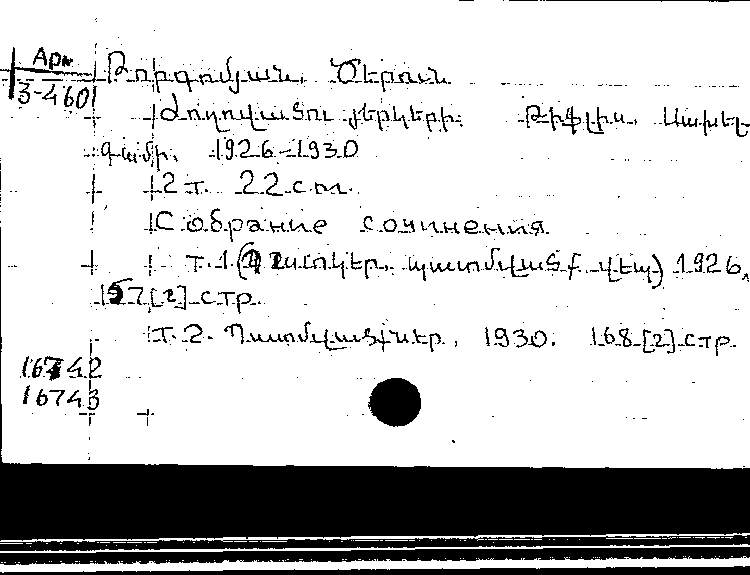 Арм
3-460
Թորգոմյան, Ծերուն
Ժողովածու յերկերի. Թիֆլիս, Սախել-
գամի, 1926-1930
2 т. 22 см.
Собрание сочинения
т. 1 պատմվածք վեպ) 1926,
157[2] стр.
Т. 2. Պատմվածքներ, 1930. 168[2] стр.
16742
16743